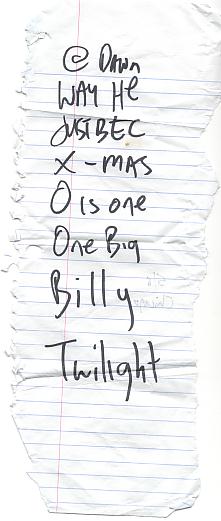 @ DAWN
WAY HE
JUSTBEC
X-MAS
O is one
One Big
Billy
Twilight